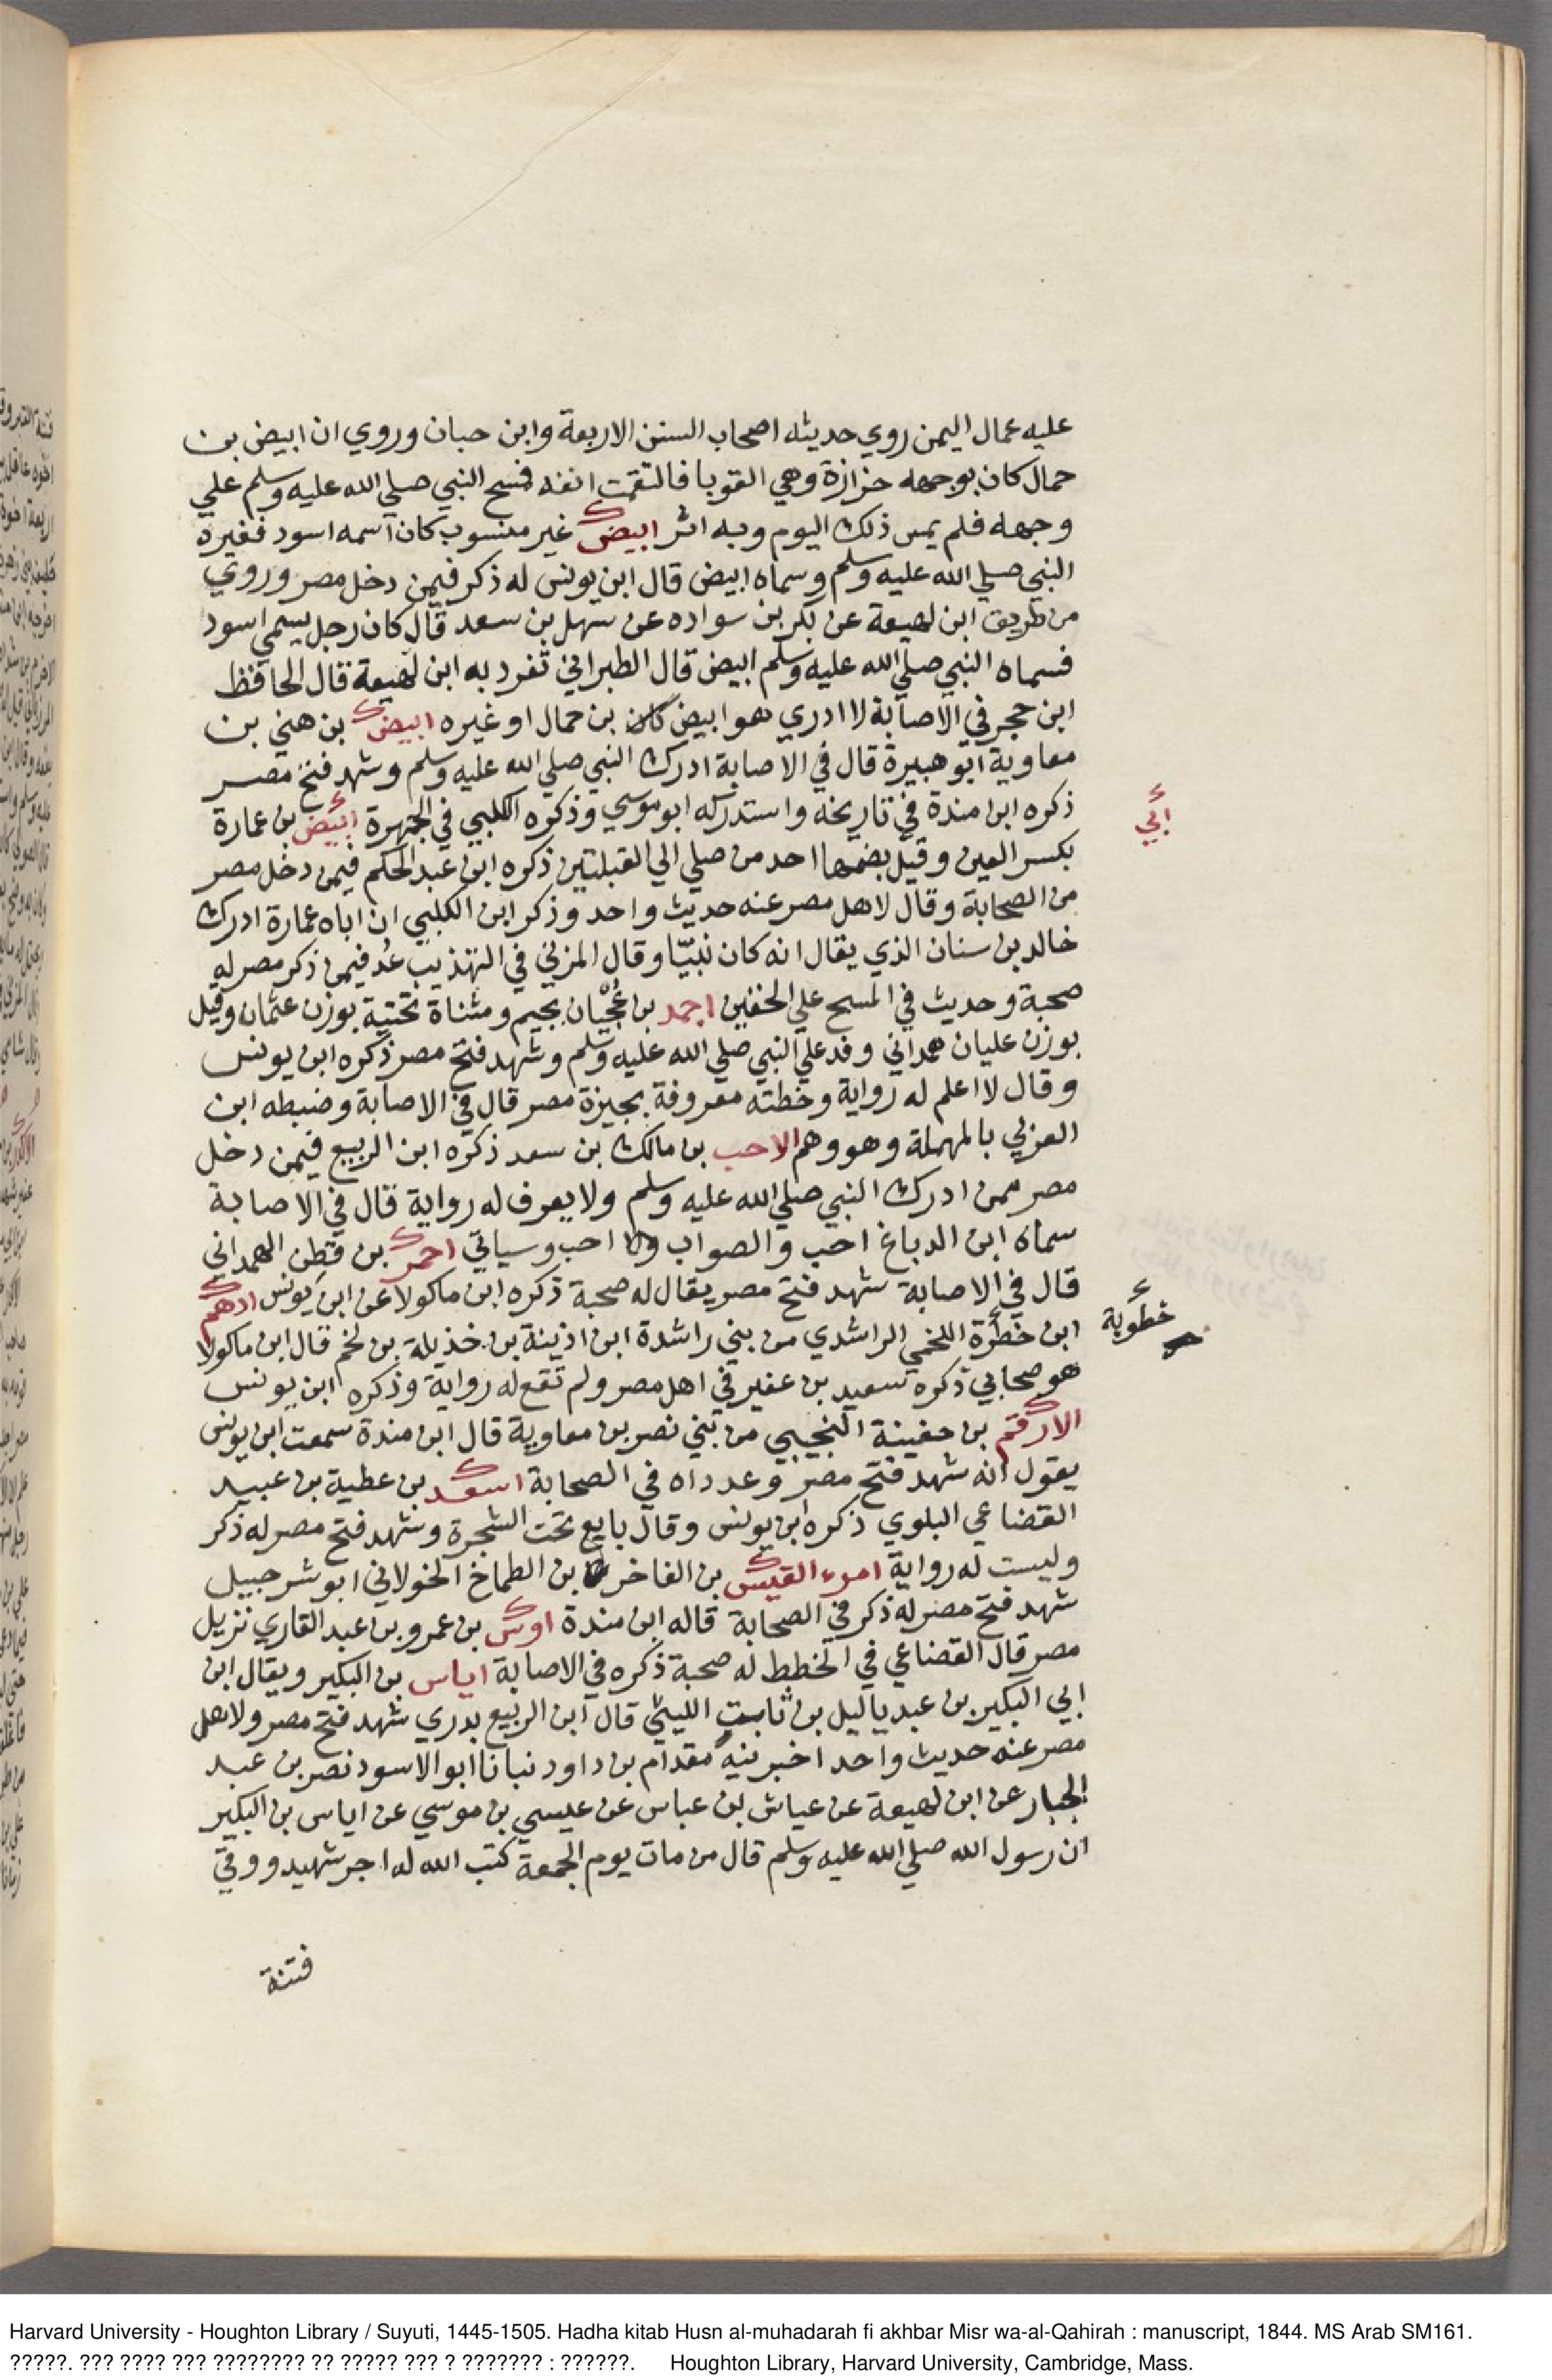 عليه عمال اليمن روي حديثه اصحاب السنن الاربعة وابن حبان وروي ان ابيض بن
حمال كان بوجهه حزازة وهي القوبا فالتقمت انفه فمسح النبي صلي الله عليه وسلم علي
وجهه فلم يمس ذلك اليوم وبه اثر ابيض غير منسوب كان اسمه اسود فغيره
النبي صلي الله عليه وسلم وسماه ابيض قال ابن يونس له ذكر فيمن دخل مصر وروي
من طريق ابن لهيعة عن بكر بن سواده عن سهل بن سعد قال كان رجل يسمي اسود
فسماه النبي صلي الله عليه وسلم ابيض قال الطبراني تفرد به ابن لهيعة قال الحافظ
ابن حجر في الاصابة لا ادري هو ابيض بن حمال او غيره ابيض بن هني بن
معاوية ابو هبيرة قال في الاصابة ادرك النبي صلي الله عليه وسلم وشهد فتح مصر
ذكره ابن مندة في تاريخه واستدركه ابو موسي وذكره الكلبي في الجمهرة ابيض بن عمارة
أبي
بكسر العين وقيل بضمها احد من صلي الي القبلتين ذكره ابن عبد الحكم فيمن دخل مصر
من الصحابة وقال لاهل مصر عنه حديث واحد وذكر ابن الكلبي ان اباه عمارة ادرك
خالد بن سنان الذي يقال انه كان نبيّا وقال المزني في التهذيب عُد فيمن ذكر مصر له
صحبة وحديث في المسح علي الخفين احمد بن عُجْيان بجيم ومثناة تحتية بوزن عثمان وقيل
بوزن عليان همداني وفد علي النبي صلي الله عليه وسلم وشهد فتح مصر ذكره ابن يونس
وقال لا اعلم له رواية وخطته معروفة بجيزة مصر قال في الاصابة وضبطه ابن
العزبي بالمهملة وهو وهم الاحب بن مالك بن سعد ذكره ابن الربيع فيمن دخل
مصر ممن ادرك النبي صلي الله عليه وسلم ولا يعرف له رواية قال في الاصابة
سماه ابن الدباغ احب والصواب احب وسياتي احمر بن قطن الهمداني
قال في الاصابة شهد فتح مصر يقال له صحبة ذكره ابن ماكولا عن ابن يونس ادهم
ابن خطرة اللخمي الراشدي من بني راشدة ابن اذينة بن خذيلة بن لخم قال ابن ماكولا
خطوية
هو صحابي ذكره سعيد بن عفير في اهل مصر ولم تقع له رواية وذكره ابن يونس
الارقم بن حفينة التجيبي من بني نصر بن معاوية قال ابن مندة سمعت ابن يونس
يقول انه شهد فتح مصر وعدداه في الصحابة اسعد بن عطية بن عبيد
القضاعي البلوي ذكره ابن يونس وقال بايع تحت الشجرة وشهد فتح مصر له ذكر
وليست له رواية امرء القيس بن الفاخر بن الطماخ الخولاني ابو شرحبيل
شهد فتح مصر له ذكر في الصحابة قاله ابن مندة اوس بن عمرو بن عبد القاري نزيل
مصر قال القضاعي في الخطط له صحبة ذكره في الاصابة اياس بن البكير ويقال ابن
ابي البكير بن عبد ياليل بن ثابت الليثي قال ابن الربيع بدري شهد فتح مصر ولاهل
مصر عنه حديث واحد اخبرنيه مقدام بن داود نبانا ابو الاسود نصر بن عبد
الجبار عن ابن لهيعة عن عياش بن عباس عن عيسي بن موسي عن اياس بن البكير
ان رسول الله صلي الله عليه وسلم قال من مات يوم الجمعة كتب الله له اجر شهيد ووقي
فتنة
Harvard University - Houghton Library / Suyuti, 1445-1505. Hadha kitab Husn al-muhadarah fi akhbar Misr wa-al-Qahirah : manuscript, 1844. MS Arab SM161.
?????. ??? ???? ??? ???????? ?? ????? ??? ? ??????? : ??????. Houghton Library, Harvard University, Cambridge, Mass.